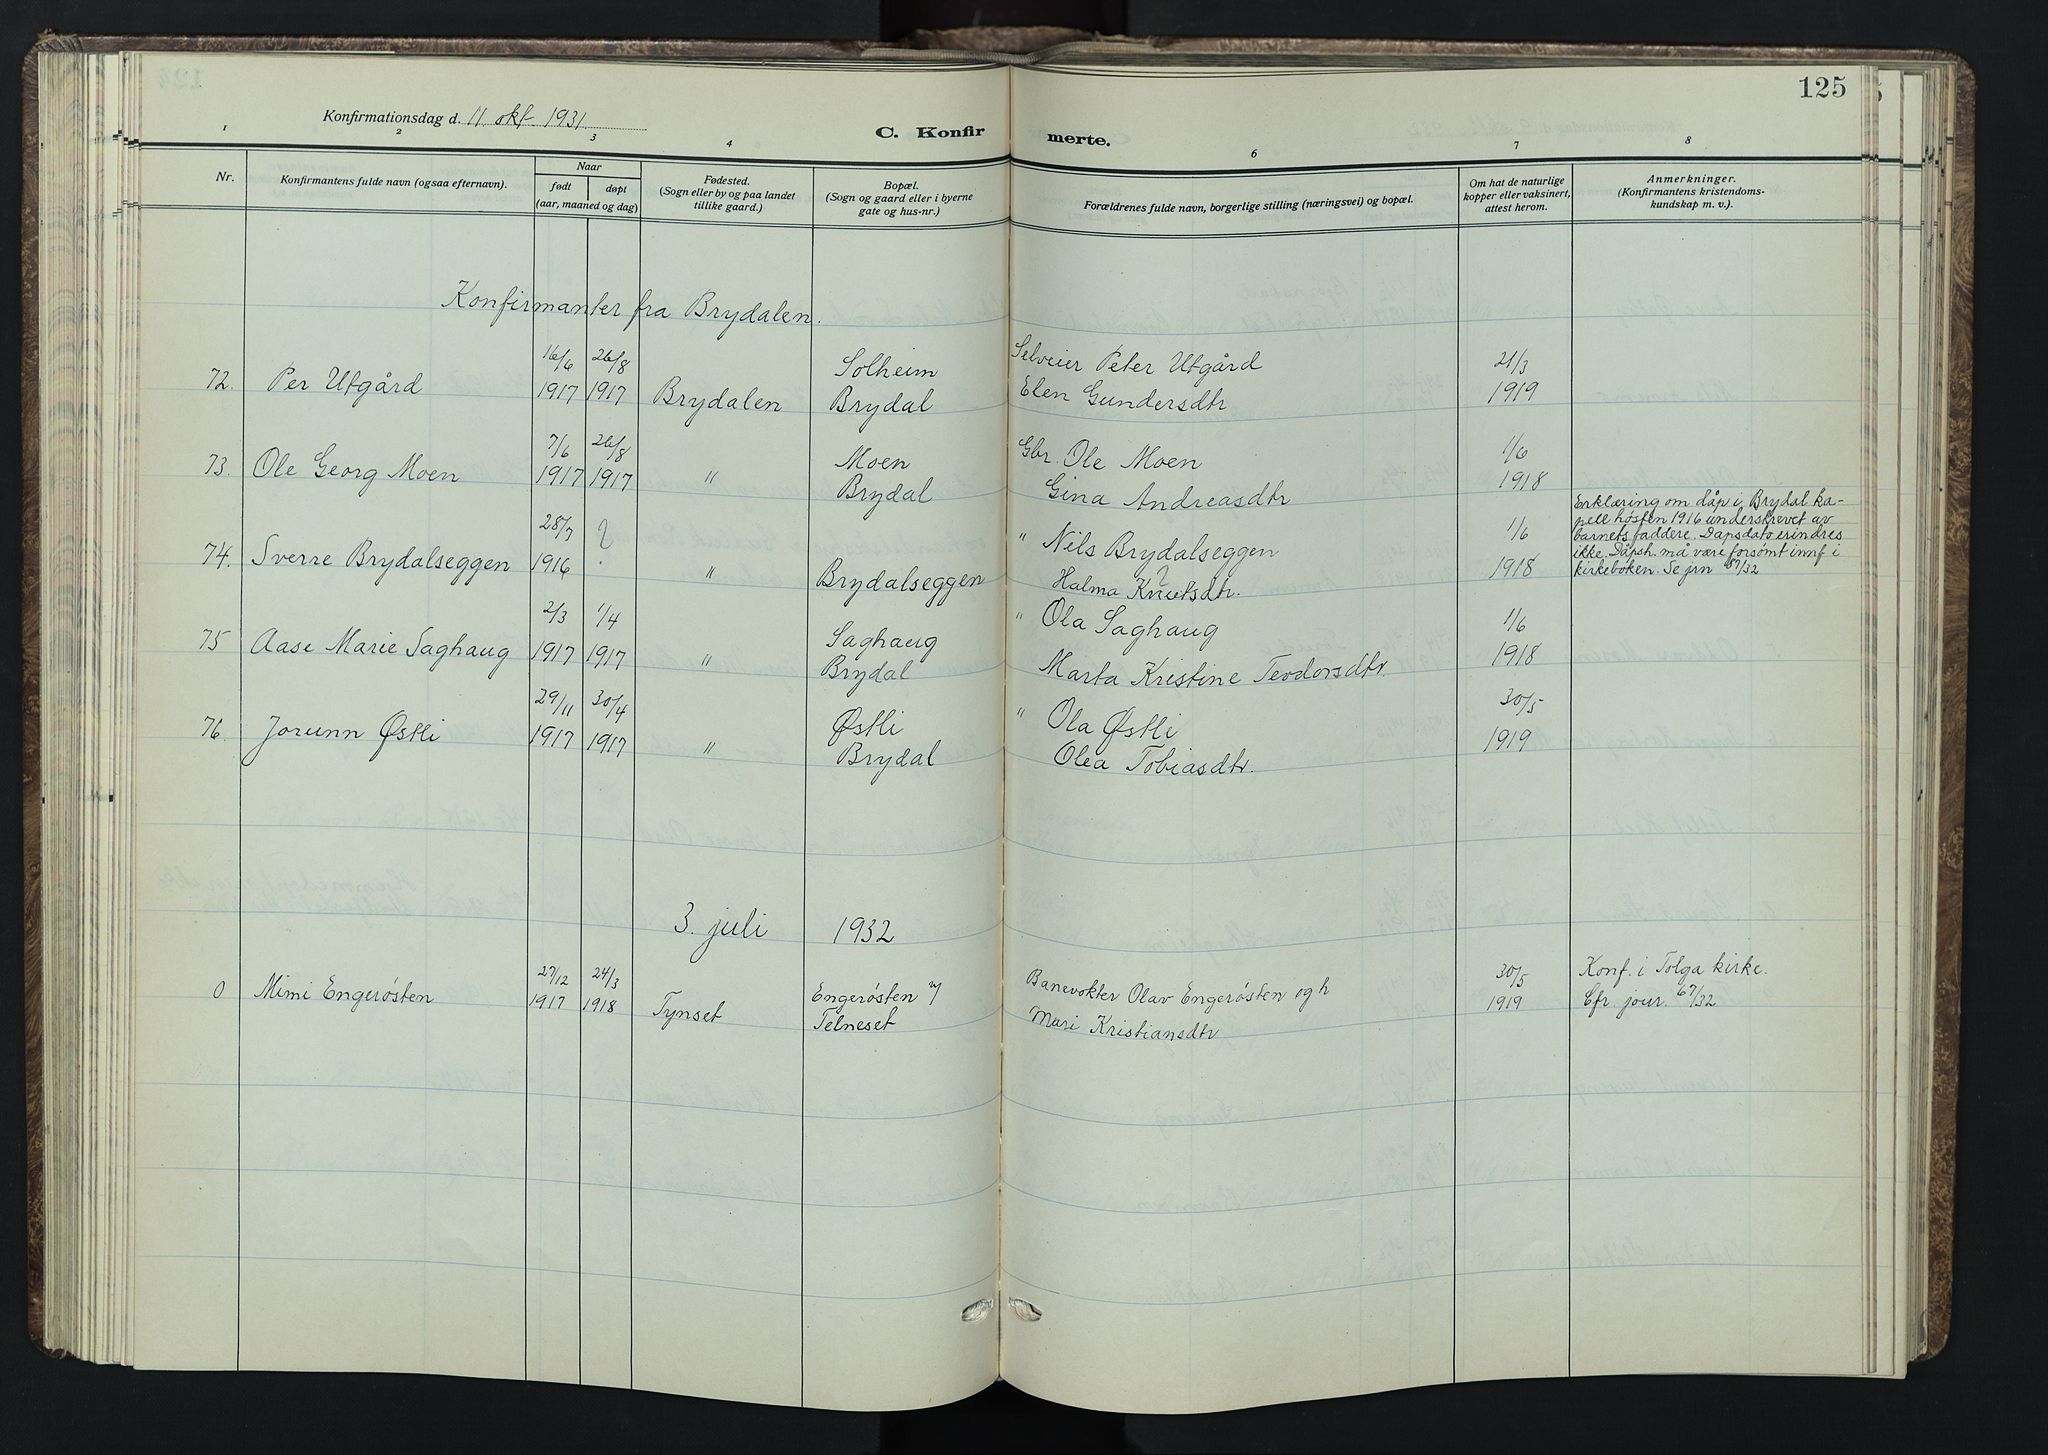 125
Konfirmationsdag d. 11. okt. 1931.
C. Konfirmerte.
1 2 3 4 6 7 8
Nr.
Konfirmantens fulde navn (ogsaa efternavn).
Naar
født
døpt
(aar, maaned og dag)
Fødested.
(Sogn eller by og paa landet
tillike gaard.)
Bopæl.
(Sogn og gaard eller i byerne
gate og hus-nr.)
Forældrenes fulde navn, borgerlige stilling (næringsvei) og bopæl.
Om hat de naturlige
kopper eller vaksinert,
attest herom.
Anmerkninger.
(Konfirmantens kristendoms-
kundskap m. v.).
Konfirmanter fra Brydalen.
16/6 26/8 Solheim Selveier Peter Utgård 21/3
72. Per Utgård 1917 1917 Brydalen Brydal Elen Gundersdtr 1919
7/6 26/8 Moen Gbr. Ole Moen 1/6
73. Ole Georg Moen 1917 1917 " Brydal Gina Andreasdtr 1918
Erklæring om dåp i Brydal ka-
pell høsten 1916 underskrevet av
barnets faddere. Dåpsdato erindres
ikke. Dåpsh. må være forsømt innf i
kirkeboken. Se jrn 67/32
28/7 ? " Nils Brydalseggen 1/6
74. Sverre Brydalseggen 1916 . " Brydalseggen Halma Knutsdtr. ? 1918
2/3 1/4 Saghaug " Ola Saghaug 1/6
75 Aase Marie Saghaug 1917 1917 " Brydal Marta Kristine Teodorsdtr. 1918
29/11 30/4 Østli " Ola Østli 30/5
76. Jorunn Østli 1917 1917 " Brydal Olea Tobiasdtr. 1919
3. juli 1932
27/12 24/3 Engerøsten v/ Banevokter Olav Engerøsten og h 30/5 Konf. i Tolga kirke.
0 Mimi Engerøsten 1917 1918 Tynset Telneset Mari Kristiansdtr 1919 Cfr. jour. 67/32